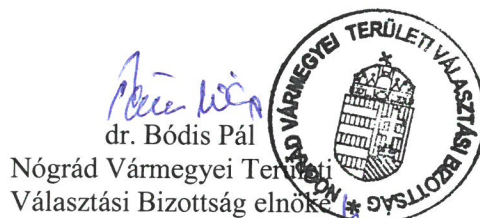 dr. Bódis Pál
Nógrád Vármegyei Területi
Választási Bizottság elnöke
NÓGRÁD VÁRMEGYEI TERÜLETI VÁLASZTÁSI BIZOTTSÁG